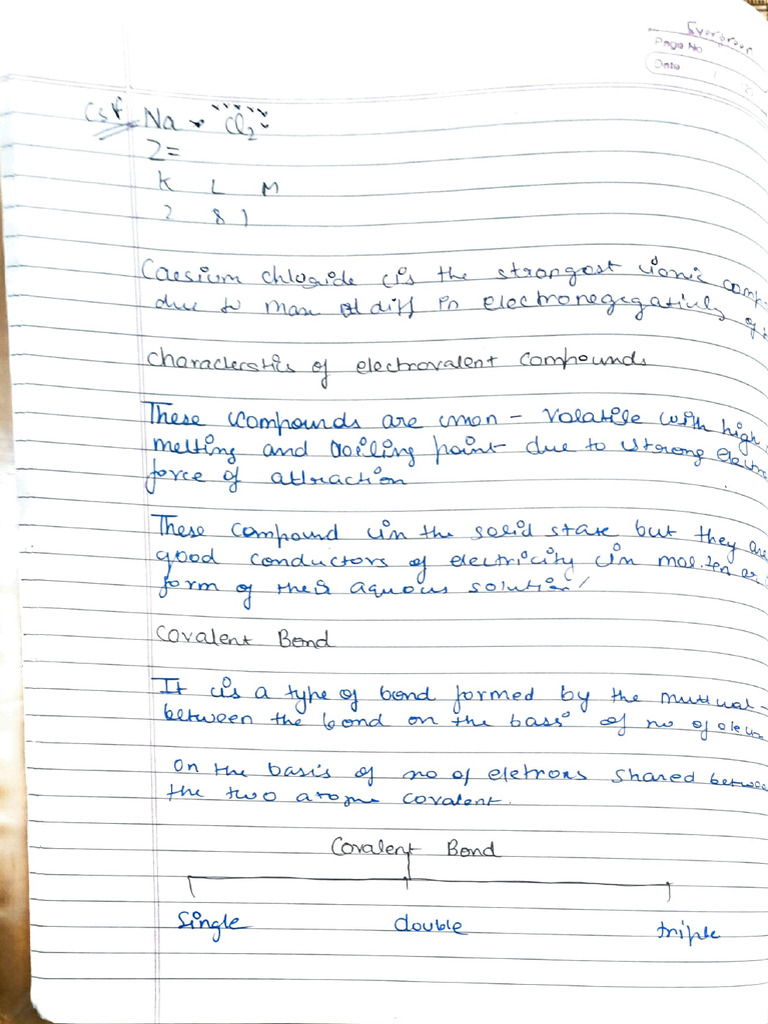 Page No
Date
Csf Na Cl2
Z=
K L M
2 8 1
Caesium chloride is the strongest ionic comp
due to max diff in electronegegativity of
characterstics of electrovalent compounds
These compounds are non - volatile with high
melting and boiling point due to strong electro
force of attraction
These compound in the solid state but they are
good conductors of electricity in molten or
form of their aquous solution
Covalent Bond
It is a type of bond formed by the mutual
between the bond on the basis of no of electr
on the basis of no of eletrons shared betwee
the two atoms covalent.
Covalent Bond
Single double triple